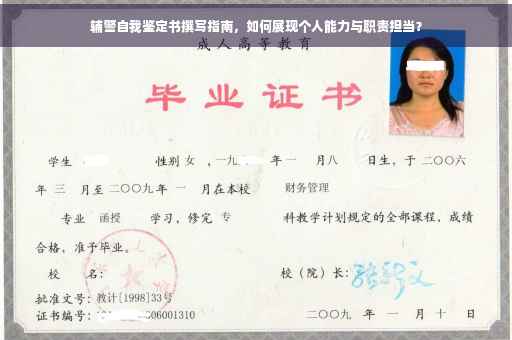 辅警自我鉴定书撰写指南，如何展现个人能力与职责担当？
成人高等教育
毕业证书
学生 性别 女 ，一九 年 一 月 八 日生，于 二〇〇六
年 三 月至 二〇〇九 年 一 月在本校 财务管理
专业 函授 学习，修完 专 科教学计划规定的全部课程，成绩
合格，准予毕业。
校 名： 校（院）长：
批准文号：教计[1998]33号
证书编号： 06001310 二〇〇九 年 一 月 十 日